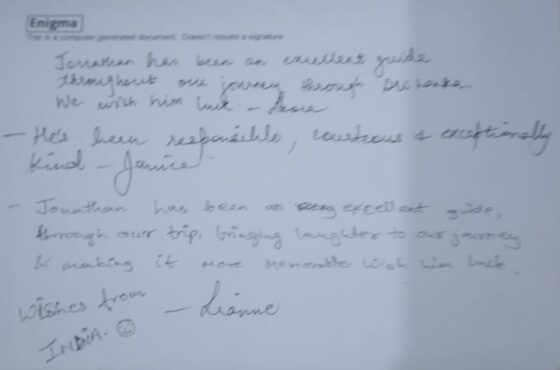 Enigma
This is a computer generated document. Doesn't require a signature
Jonathan has been an excellent guide
throughout our journey through Sri Lanka
We wish him luck -
- He's been responsible, courteous & exceptionally
kind - Janice
- Jonathan has been an excellent guide,
through our trip, bringing laughter to our journey
& making it more memorable Wish him luck.
- Lianne
Wishes from
INDIA. ☺